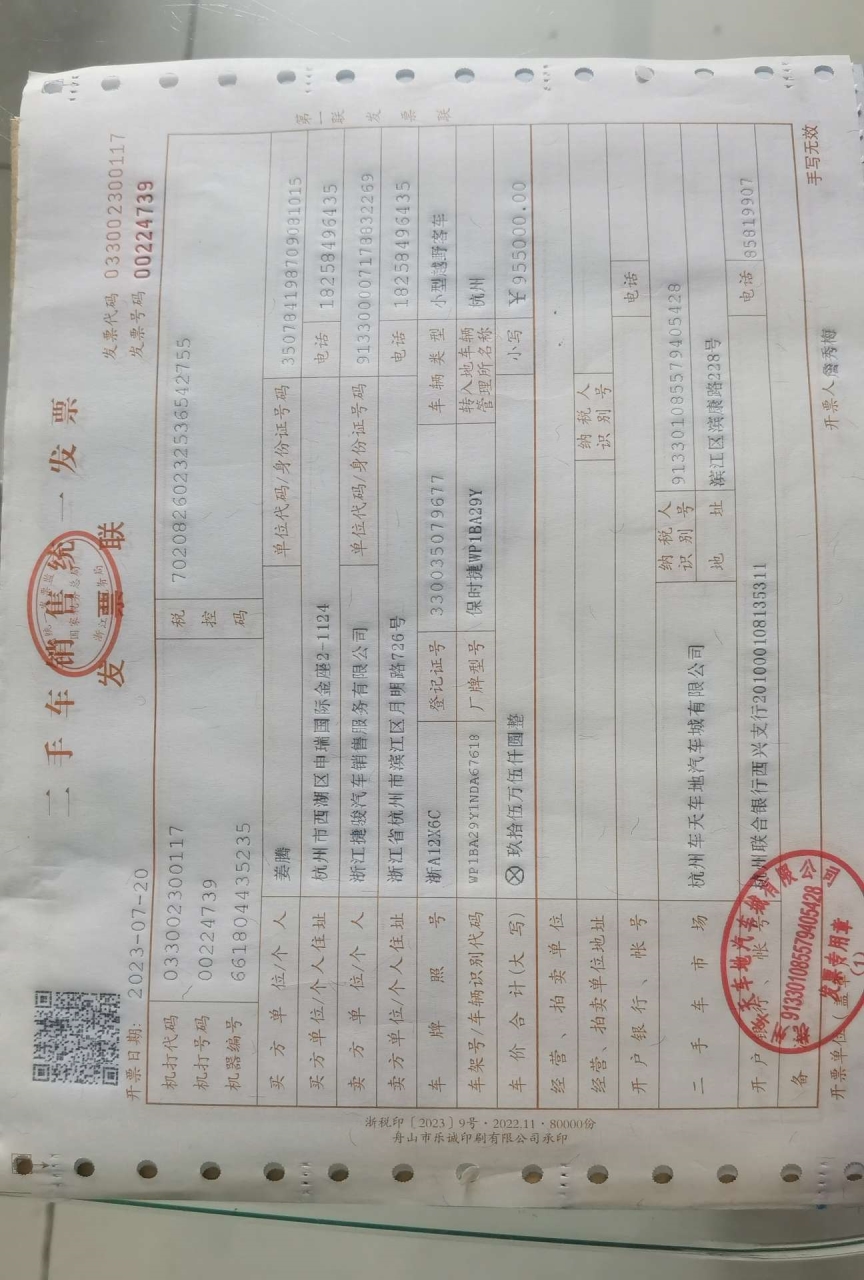 二手车销售统一发票
发票联
发票代码 033002300117
发票号码 00224739
开票日期: 2023-07-20
机打代码 033002300117
机打号码 00224739
机器编号 661804435235
税控码 702082602325365427​55
买方单位/个人 姜腾 单位代码/身份证号码 350784198709081015
买方单位/个人住址 杭州市西湖区申瑞国际金座2-1124 电话 18258496435
卖方单位/个人 浙江捷骏汽车销售服务有限公司 单位代码/身份证号码 9133000071780322​69
卖方单位/个人住址 浙江省杭州市滨江区月明路726号 电话 18258496435
车牌照号 浙A12X6C 登记证号 330035079677 车辆类型 小型越野客车
车架号/车辆识别代码 WP1BA29Y1NDA67618 厂牌型号 保时捷WP1BA29Y 转入地车辆管理所名称 杭州
车价合计(大写) ⊗玖拾伍万伍仟圆整 小写 ￥955000.00
经营、拍卖单位
经营、拍卖单位地址 纳税人识别号
开户银行、帐号 电话
二手车市场 杭州车天车地汽车城有限公司 纳税人识别号 913301085579405428
地址 滨江区滨康路228号
开户银行、帐号 杭州联合银行西兴支行201000108135311 电话 85819907
备
开票单位(盖章) 开票人 詹秀梅 手写无效
第一联 发票联
浙税印〔2023〕9号·2022.11·80000份
舟山市乐诚印刷有限公司承印
913301085579405428
发票专用章
(1)